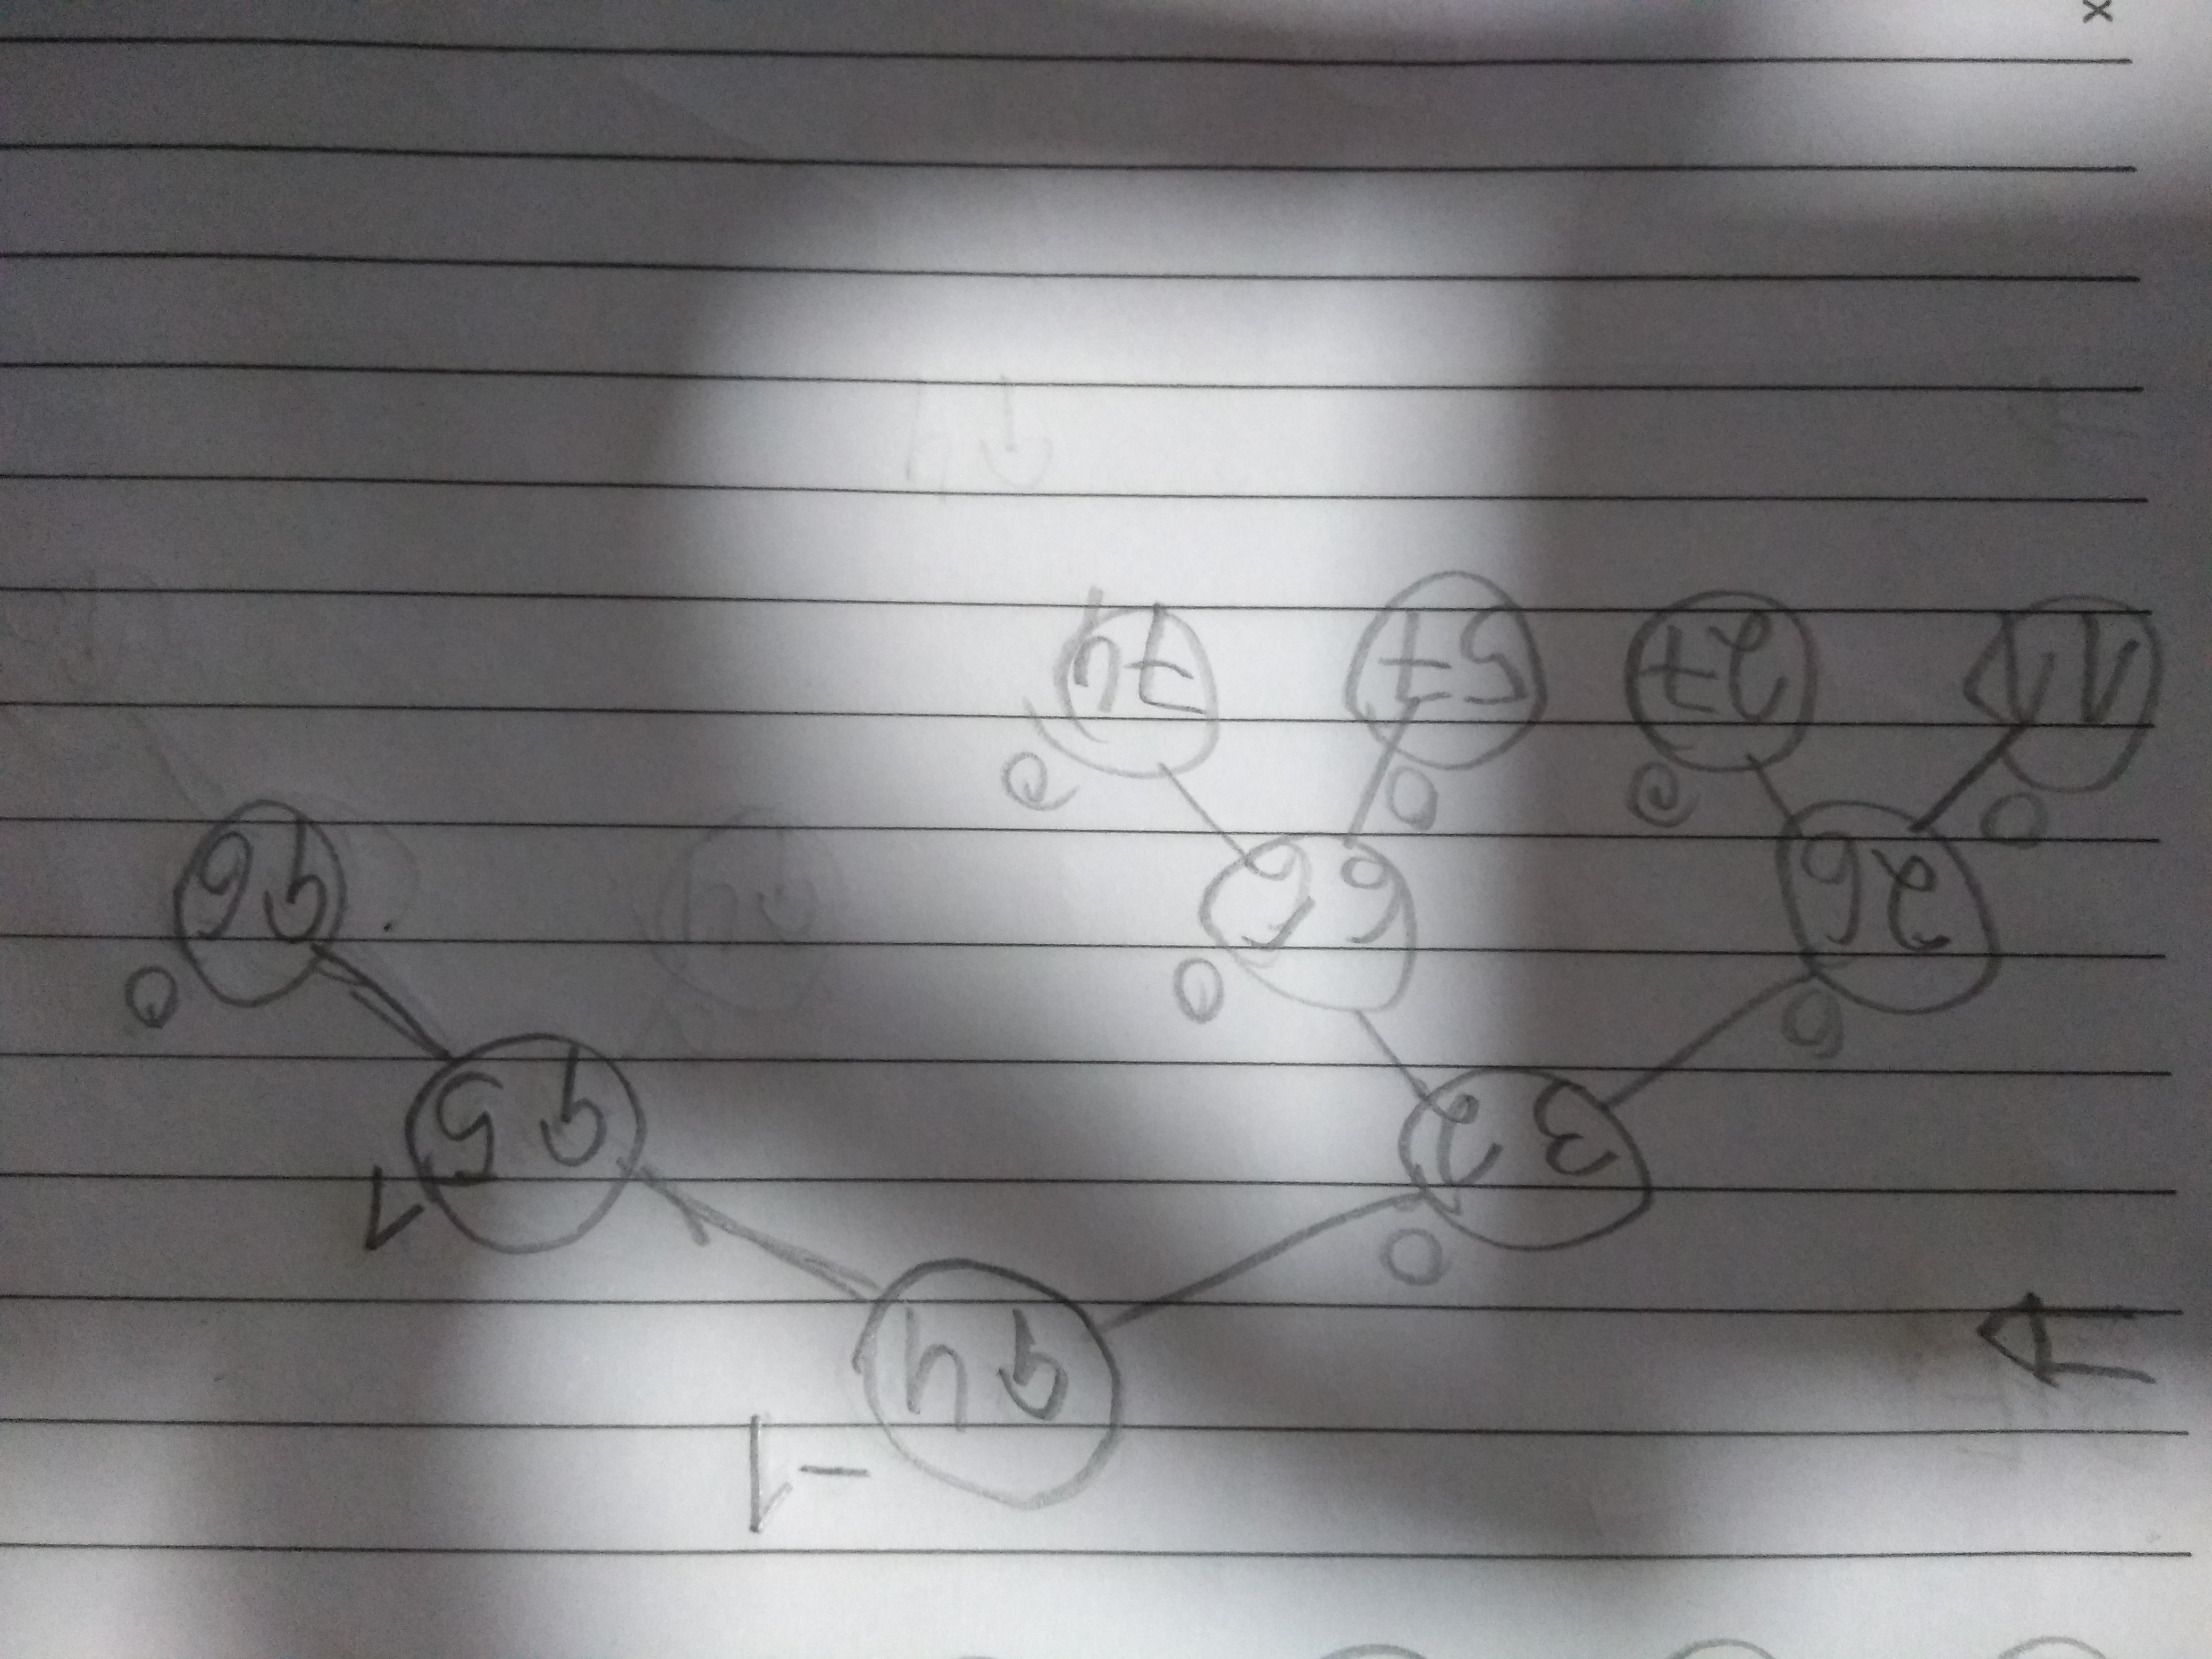 -1
94
0
32
1
95
0
26
0
66
0
96
0
11
0
27
0
57
0
74
94
94
x